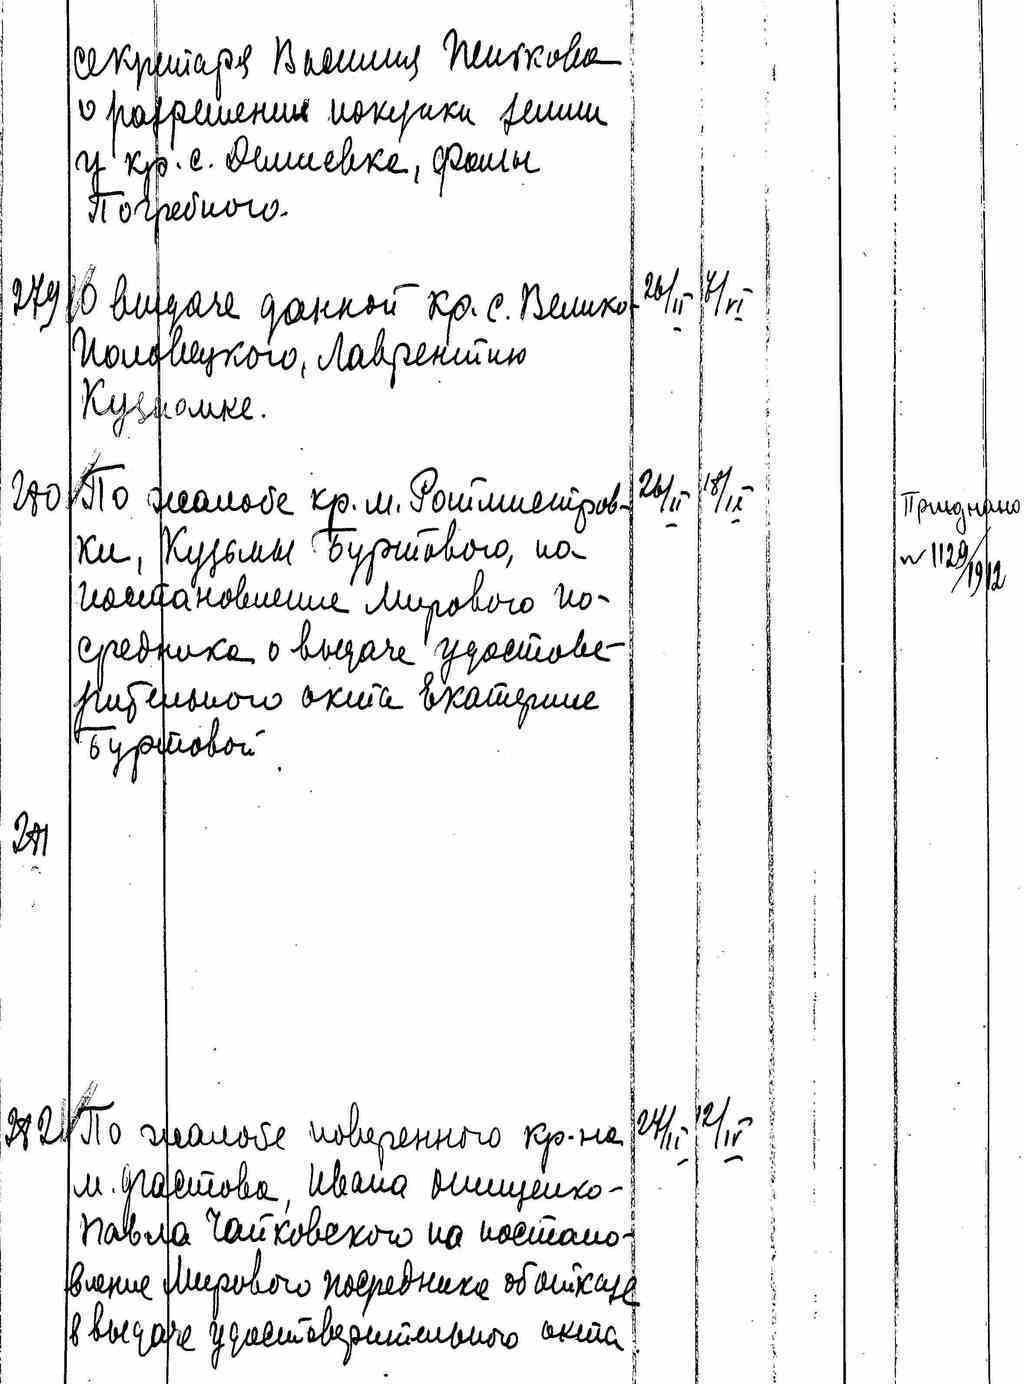 секретаря Василия Пенткова
о разрешении покупки земли
у кр. с. Демиевка, Фомы
Погребного.
279 О выдаче данной кр. с. Велико- 26/II 7/VI
Половецкого, Лаврентию
Кузноmке.
280 По жалобе кр. м. Ротмистров- 26/II 18/IX
ки, Кузьмы Буртового, на
постановление Мирового по-
средника о выдаче удостове-
рительного акта Екатерине
Буртовой
Приєднано
№ 1129/1912
281
282 По жалобе поверенного кр-на 27/II 12/IV
м. Фастова, Ивана Онищенко-
Павла Чайковского на постано-
вление Мирового посредника об отказе
в выдаче удостоверительного акта